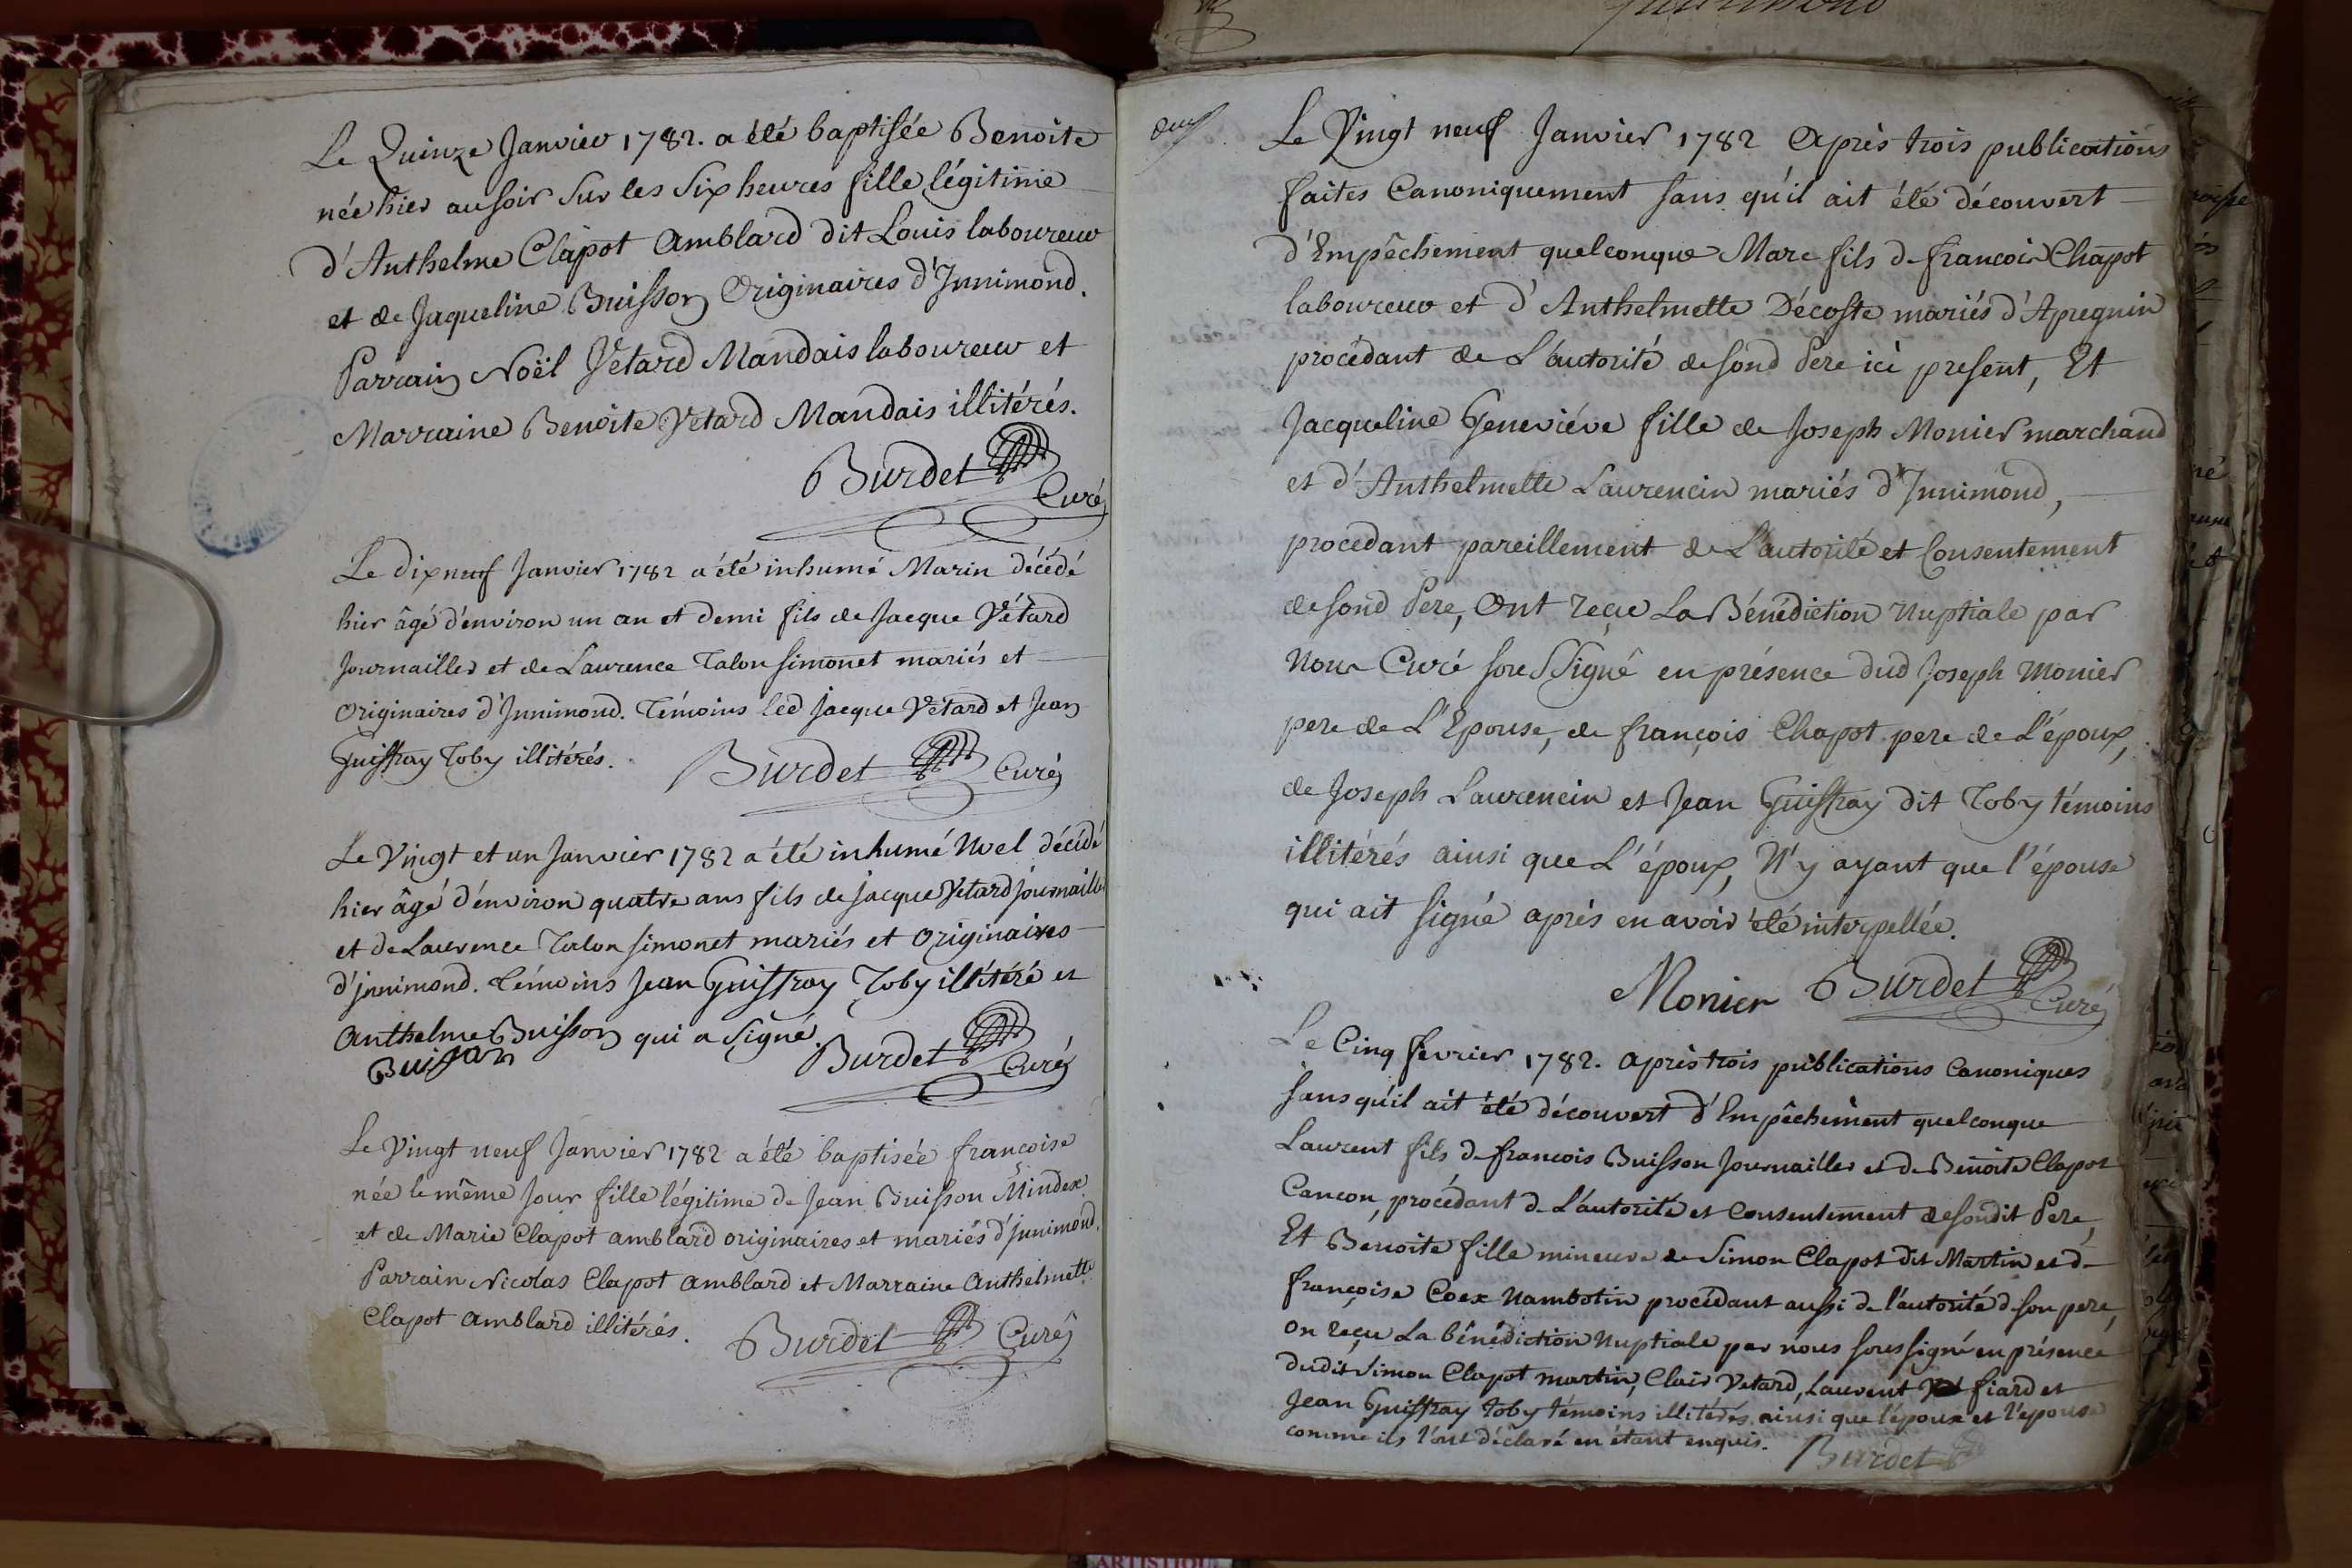 Le Quinze Janvier 1782. a été baptisée Benoite
née hier au soir sur les six heures fille légitime
d'Anthelme Clapot Amblard dit Louis laboureur
et de Jaqueline Buisson Originaires d'Innimond.
Parrain Noël Vetard Mandais laboureur et
Marraine Benoite Vetard Mandais illitérés.
Burdet
Curé
Le dix neuf Janvier 1782 a été inhumé Marin décédé
hier âgé d'environ un an et demi fils de Jacque Vétard
Journaillier et de Laurence Talon simonet mariés et
Originaires d'Innimond. Témoins led jacque Vétard et Jean
Guiffray Toby illitérés.
Burdet Curé
Le Vingt et un Janvier 1782 a été inhumé Noel décédé
hier âgé d'environ quatre ans fils de jacque Vetard journaillier
et de Laurence Talon simonet mariés et Originaires
d'jnnimond. Témoins Jean Guiffray Toby illitéré et
Anthelme Buisson qui a signé.
Buisson Burdet Curé
Le Vingt neuf Janvier 1782 a été baptisée francoise
née le même Jour fille légitime de Jean Buisson Mindex
et de Marie Clapot amblard originaires et mariés d'jnnimond.
Parrain Nicolas Clapot amblard et Marraine Anthelmette
Clapot amblard illitérés.
Burdet Curé
deux
Le Vingt neuf Janvier 1782 Après trois publications
faites Canoniquement sans qu'il ait été découvert
d'Empêchement quelconque Marc fils de francois Chapot
laboureur et d'Anthelmette Décoste mariés d'Apregnin
procédant de L'autorité de sond Pere ici present, Et
Jacqueline Geneviéve fille de Joseph Monier marchand
et d'Anthelmette Laurencin mariés d'Innimond,
procédant pareillement de L'autorité et Consentement
de sond Pere, Ont reçu La Bénédiction Nuptiale par
Nous Curé sousSigné en présence dud Joseph Monier
pere de L'Epouse, de françois Chapot pere de L'époux,
de Joseph Laurencin et Jean Guiffray dit Toby témoins
illitérés ainsi que L'époux, N'y ayant que l'épouse
qui ait signé après en avoir été interpellée.
Monier Burdet
Curé
Le Cinq fevrier 1782. après trois publications Canoniques
sans qu'il ait été découvert d'Empêchement quelconque
Laurent fils de francois Buisson Journaillier et de Benoite Clapot
Cancon, procédant de L'autorité et Consentement de sondit Pere,
Et Benoite fille mineure de Simon Clapot dit Martin et de
françoise Coex Nambotin procédant aussi de l'autorité de son pere,
on reçu La bénédiction Nuptiale par nous soussigné en présence
dudit Simon Clapot martin, Clair Vetard, Laurent fiard et
Jean Guiffray Toby témoins illitérés ainsi que l'époux et l'épouse
comme ils l'ont déclaré en étant enquis.
Burdet
ARTISTIQUE